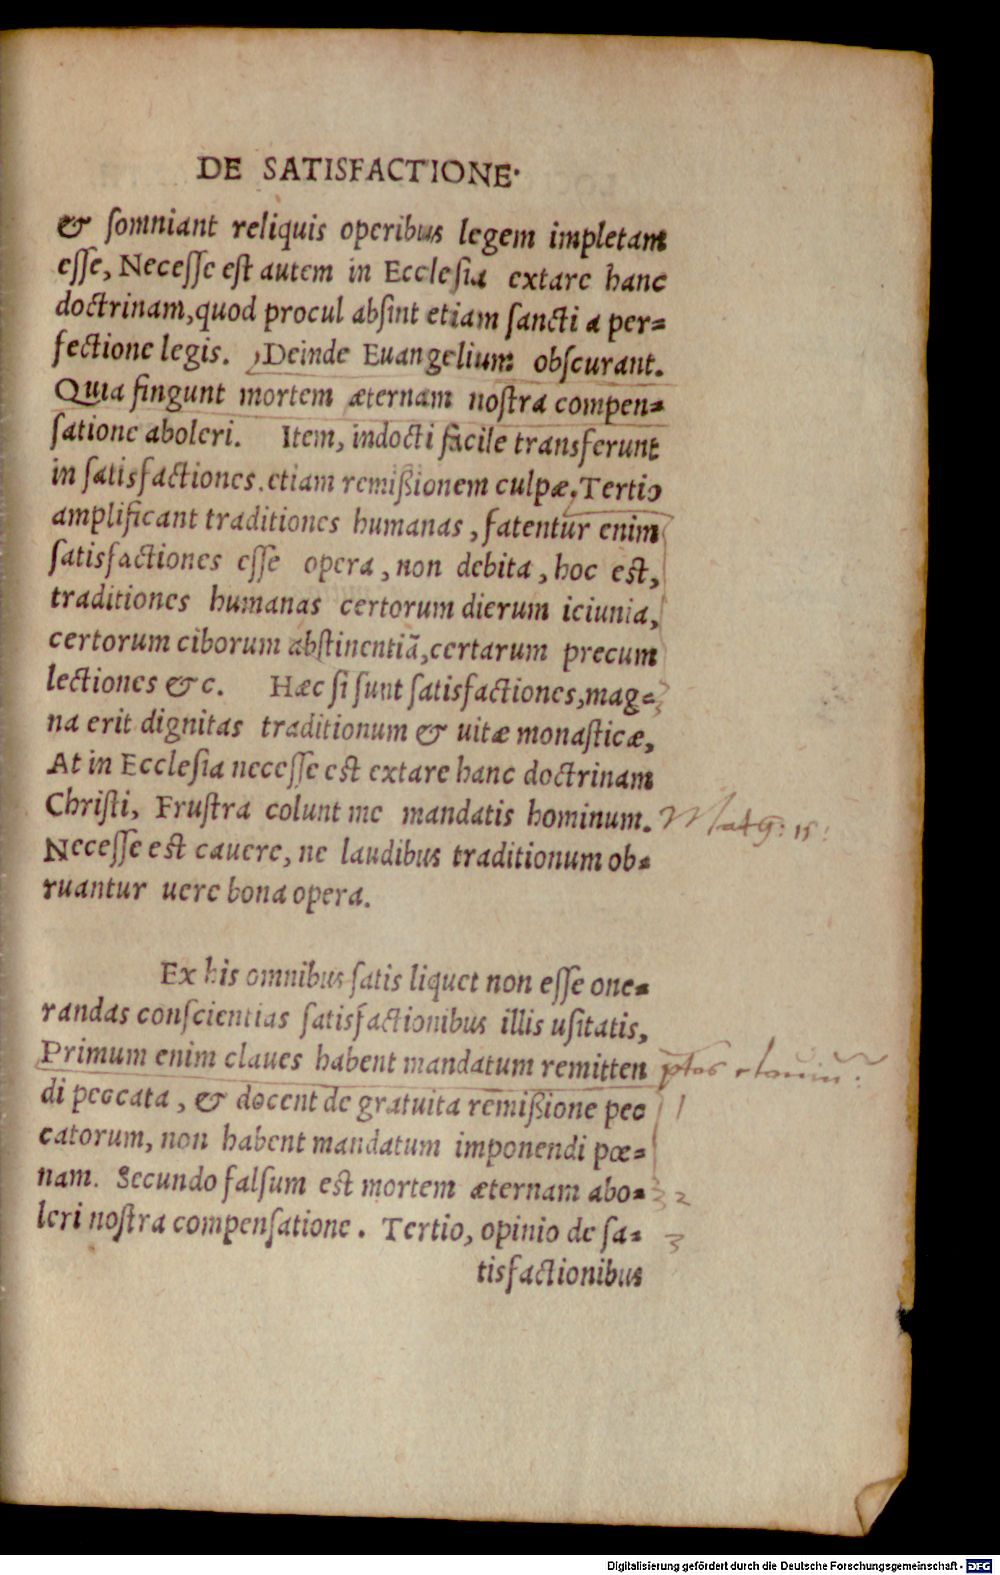 DE SATISFACTIONE.
& ſomniant reliquis operibus legem impletam
eſſe, Neceſſe eſt autem in Eccleſia extare hanc
doctrinam, quod procul abſint etiam ſancti a per=
fectione legis. Deinde Euangelium obſcurant.
Quia fingunt mortem æternam noſtra compen=
ſatione aboleri. Item, indocti facile transferunt
in ſatisfactiones. etiam remiſſionem culpæ, Tertio
amplificant traditiones humanas, fatentur enim
ſatisfactiones eſſe opera, non debita, hoc eſt,
traditiones humanas certorum dierum ieiunia,
certorum ciborum abſtinentiã, certarum precum
lectiones & c. Hæc ſi ſunt ſatisfactiones, mag=
na erit dignitas traditionum & uitæ monaſticæ,
At in Eccleſia neceſſe eſt extare hanc doctrinam
Chriſti, Fruſtra colunt me mandatis hominum.
Matg: 15:
Neceſſe eſt cauere, ne laudibus traditionum ob=
ruantur uere bona opera.
Ex his omnibus ſatis liquet non eſſe one=
randas conſcientias ſatisfactionibus illis uſitatis,
Primum enim claues habent mandatum remitten
di peccata, & docent de gratuita remiſſione pec
1
catorum, non habent mandatum imponendi pœ=
nam. Secundo falſum eſt mortem æternam abo=
2
leri noſtra compenſatione. Tertio, opinio de ſa=
3
tisfactionibus
Digitalisierung gefördert durch die Deutsche Forschungsgemeinschaft - DFG